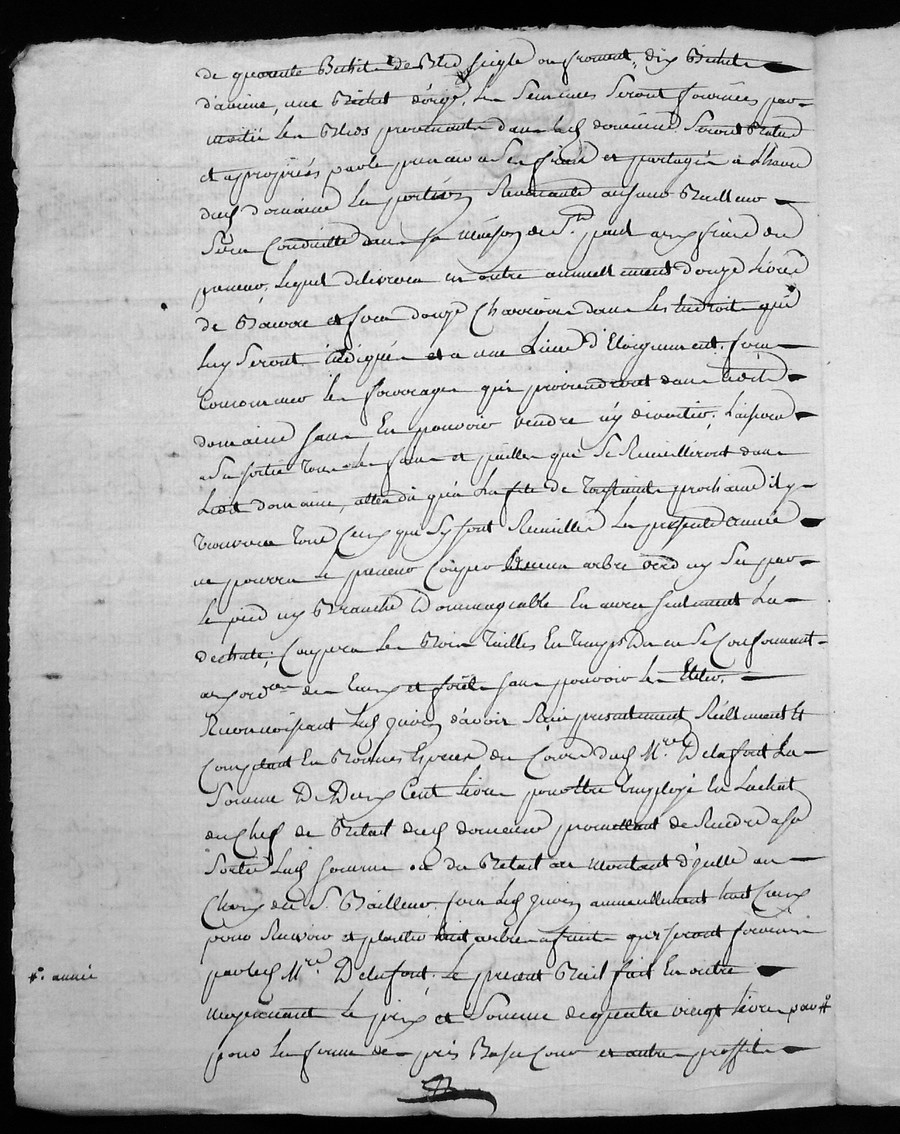 de quarante Bichets de Bled seigle ou froment, dix Bichets
d'avoine, une Bichet d'orge, les Semences Seront fournies par
moitié les Bleds provenants dans led domaine Seront Battus
et appropriés par le preneur a Ses frais et partagés a
dud domaine La portion Revenante audsieur Bailleur
Sera Conduitte dans sa Maison de St paul aux frais du
preneur, Lequel delivrera en outre annuellement douze Livres
de Beurre et fera douze Charrois dans les Endroits qui
luy Seront indiqués et a une Lieue d'Eloignement, fera
Consommer les fourrages qui proviendront dans ledit
domaine sans En pouvoir vendre n'y divertir, Laissera
a Sa sortie Tous les foins et pailles qui Se Recueilleront dans
Ledit domaine, attendu qu'a La fete de Toussaint prochaine il y
trouvera Tous Ceux qui Sy sont Recueilles La presente année
ne pourra Le preneur Couper aucun arbre verd ny Sec par
Le pied ny Branche Dommageable En aura seulement La
Coupera Les Bois Tailles En Temps Du en Se Conformant
aux ordces des Eaux et forêts sans pouvoir Les
Reconnoissant Lesd d'avoir Reçu presentement Réellement et
Comptant En Bonnes Especes de Cours dud Mre Delafont La
Somme De Deux Cent Livres pour Etre Employé En Lachat
du Chef de Betail dud domaine promettant de Rendre a Sa
Sortie Lad somme ou du Betail au Montant d'icelle au
Choix dud S. Bailleur. fera Led annuellement huit Creux
pour Recevoir et planter huit arbres a fruits qui seront fournis
par led Mre Delafont. Le present Bail fait En outre
Moyennant Le prix et Somme de quatre vingt Livres par #
pour La ferme des près Basse Cour et autres proffits
#. année